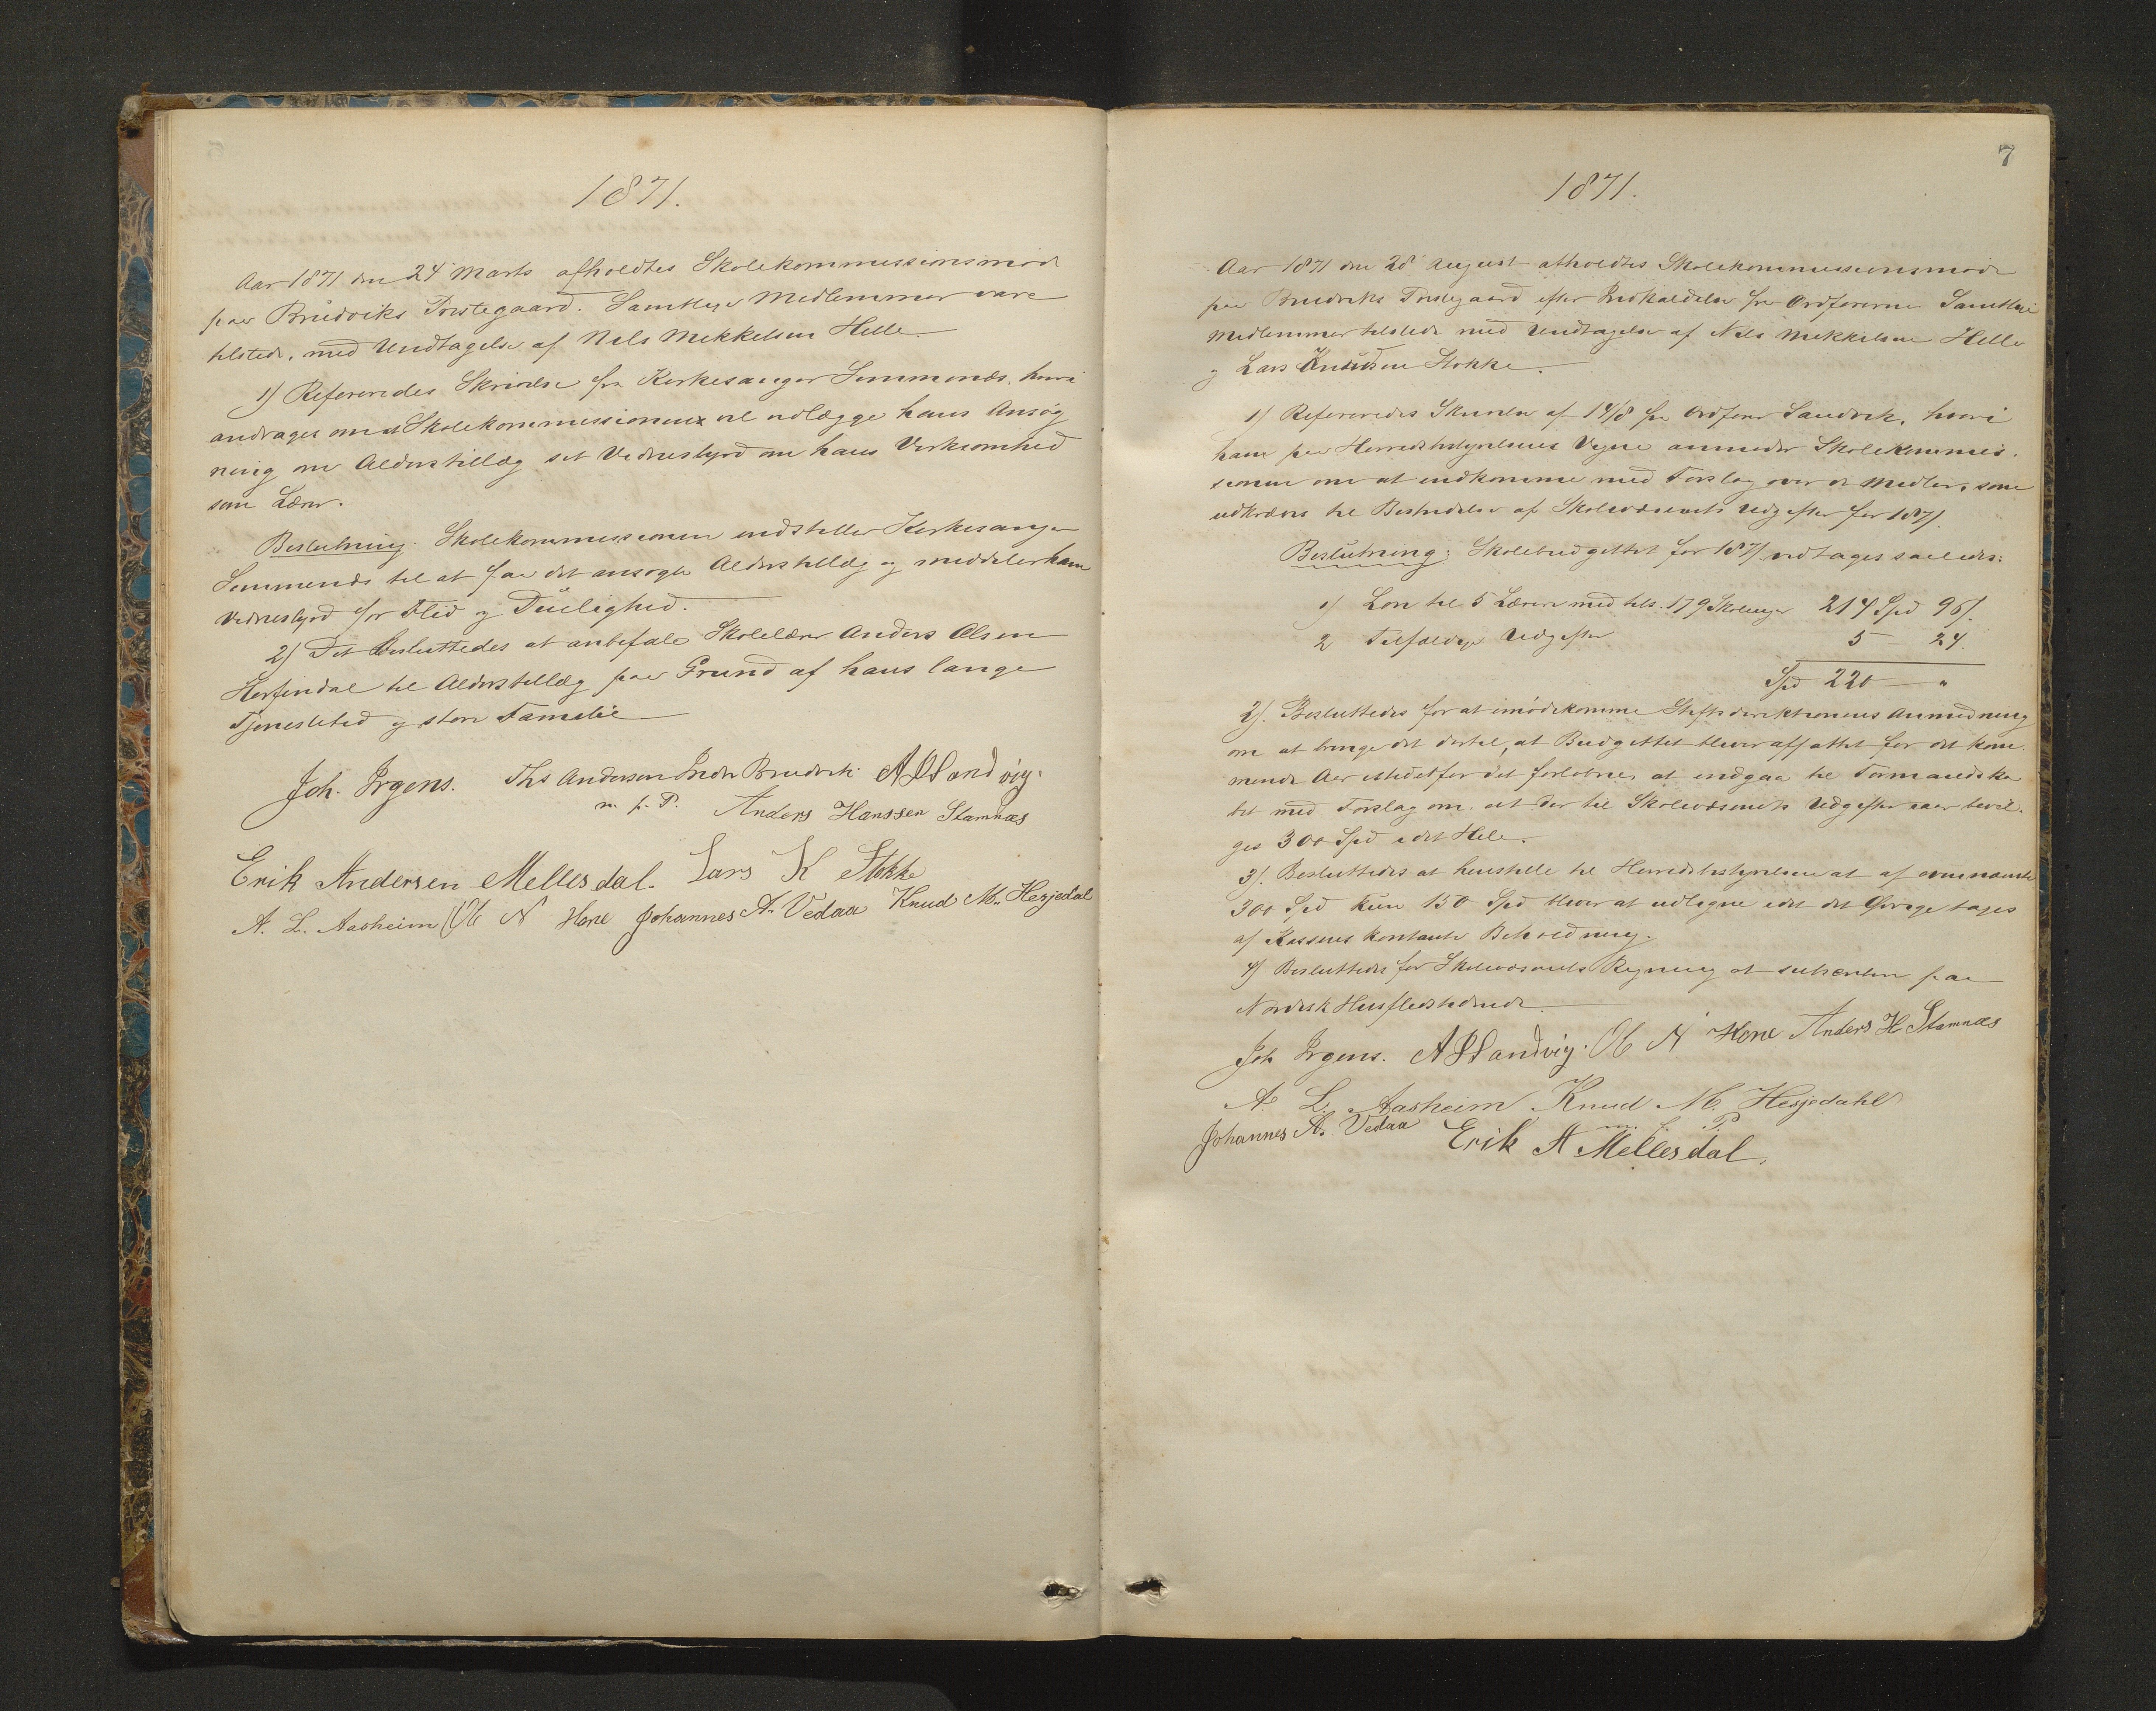 1871.
Aar 1871 den 24 Marts afholdtes Skolekommissionsmøde
paa Bruviks Prestegaard. Samtlige Medlemmer vare
tilstede, med Undtagelse af Nils Mikkelsen Helle.
1) Refereredes Skrivelse fra Kirkesanger Simmenæs, hvori
andrages om at Skolekommissionen vil vedlægge hans Ansøg
ning om Alderstillæg sit Vidnesbyrd om hans Virksomhed
som Lærer.
Beslutning. Skolekommissionen indstiller Kirkesanger
Simmenæs til at faa det ansøgte Alderstillæg og meddeler ham
Vidnesbyrd for Flid og Duelighed.
2) Det besluttedes at anbefale Skolelærer Anders Olsen
Herfindal til Alderstillæg paa Grund af hans lange
Tjenestetid og store Familie
Joh. Irgens. Ths Andersen Indre Bruvik A Sandvig.
m. p. P. Anders Hanssen Stamnæs
Erik Andersen Mellesdal. Lars K Stokke
A. L. Aasheim Ol N Hone Johannes A. Vedaa Knud M. Hesjedal
7
1871.
Aar 1871 den 28 August afholdtes Skolekommissionsmøde
paa Bruviks Prestegaard efter Indkaldelse fra Ordføreren. Samtlige
Medlemmer tilstede med Undtagelse af Nils Mikkelsen Helle
og Lars Knudsen Stokke.
1) Refereredes Skrivelse af 14/8 fra Ordfører Sandvik, hvori
han paa Herredsbestyrelsens Vegne anmoder Skolekommis-
sionen om at indkomme med Forslag over de Midler, som
udkræves til Bestridelse af Skolevæsenets Udgifter for 1871.
Beslutning: Skolebudgettet for 1871 vedtages saaledes:
1) Løn til 5 Lærere med tils. 179 Skoleuger 214 Spd 96/.
2 Tilfældige Udgifter 5 — 24.
Spd 220 — "
2). Besluttedes for at imødekomme Stiftsdirektionens Anmodning
om at bringe det dertil, at Budgettet bliver affattet for det kom-
mende Aar istedetfor det forløbne, at indgaa til Formandska
bet med Forslag om at der til Skolevæsenets Udgifter iaar bevil-
ges 300 Spd i det Hele.
3). Besluttedes at henstille til Herredsbestyrelsen at af ovennævnte
300 Spd kun 150 Spd bliver at udligne idet det Øvrige tages
af Kassens kontante Beholdning.
4) Besluttedes for Skolevæsenets Regning at subskribere paa
Nordisk Husflidstidende.
Joh Irgens. A Sandvig. Ol N Hone Anders H Stamnæs
A. L. Aasheim Knud M. Hesjedahl
m. f. P
Johannes A. Vedaa Erik A Mellesdal.